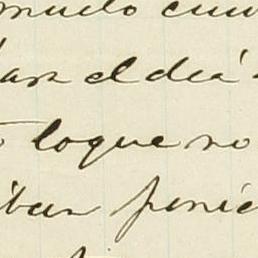 mucho cui
an el dia
loque no
iban ponie